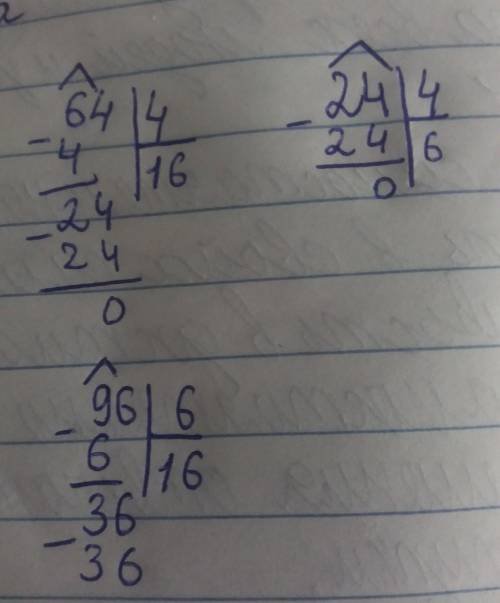 64 | 4
- 4 | 16
24
- 24
0
- 24 | 4
24 | 6
0
- 96 | 6
6 | 16
36
- 36